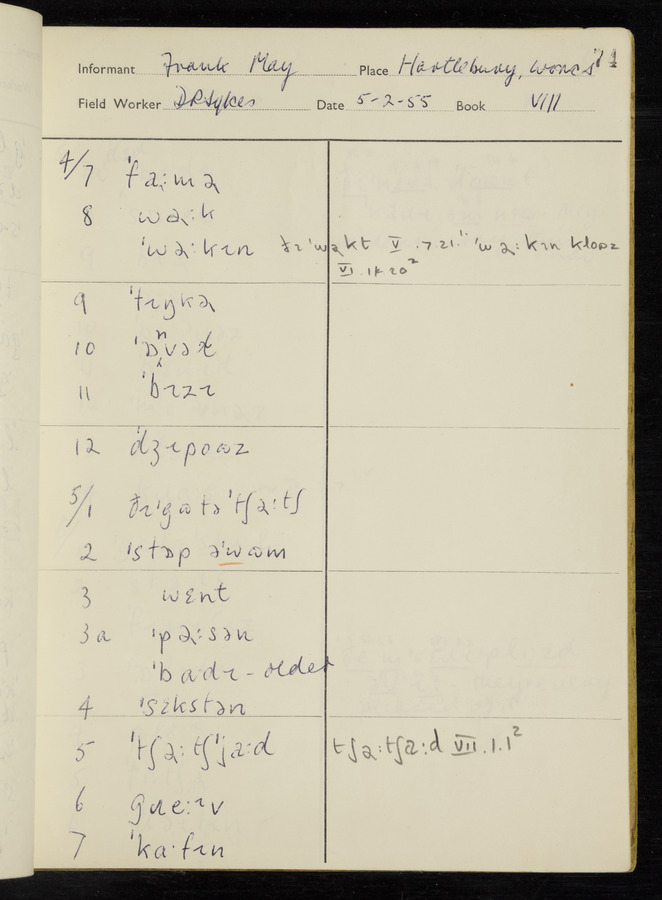 Informant Frank May Place Hartlebury, Worcs 74
Field Worker D R Sykes Date 5-2-55 Book VIII
4/7 ˈfaːmə
8 wəːk
ˈwəːkɪn ðɪˈwəkt V.7 21." ˈwəːkɪn kloəz
VI.14 20²
9 ˈtɪŋkə
10 ˈɒnvəɫ
11 ˈbɪzɪ
12 ˈdʒɪpoəz
5/1 ðɪˈgɷtəˈtʃəːtʃ
2 ˈstɒp əˈwɷm
3 wɛnt
3a ˈpəːsən
ˈbadɪ - older
4 ˈsɛkstən
5 ˈtʃəːtʃˈjaːd tʃəːtʃaːd VII.1.1²
6 greːɪv
7 ˈkɑ·fɪn